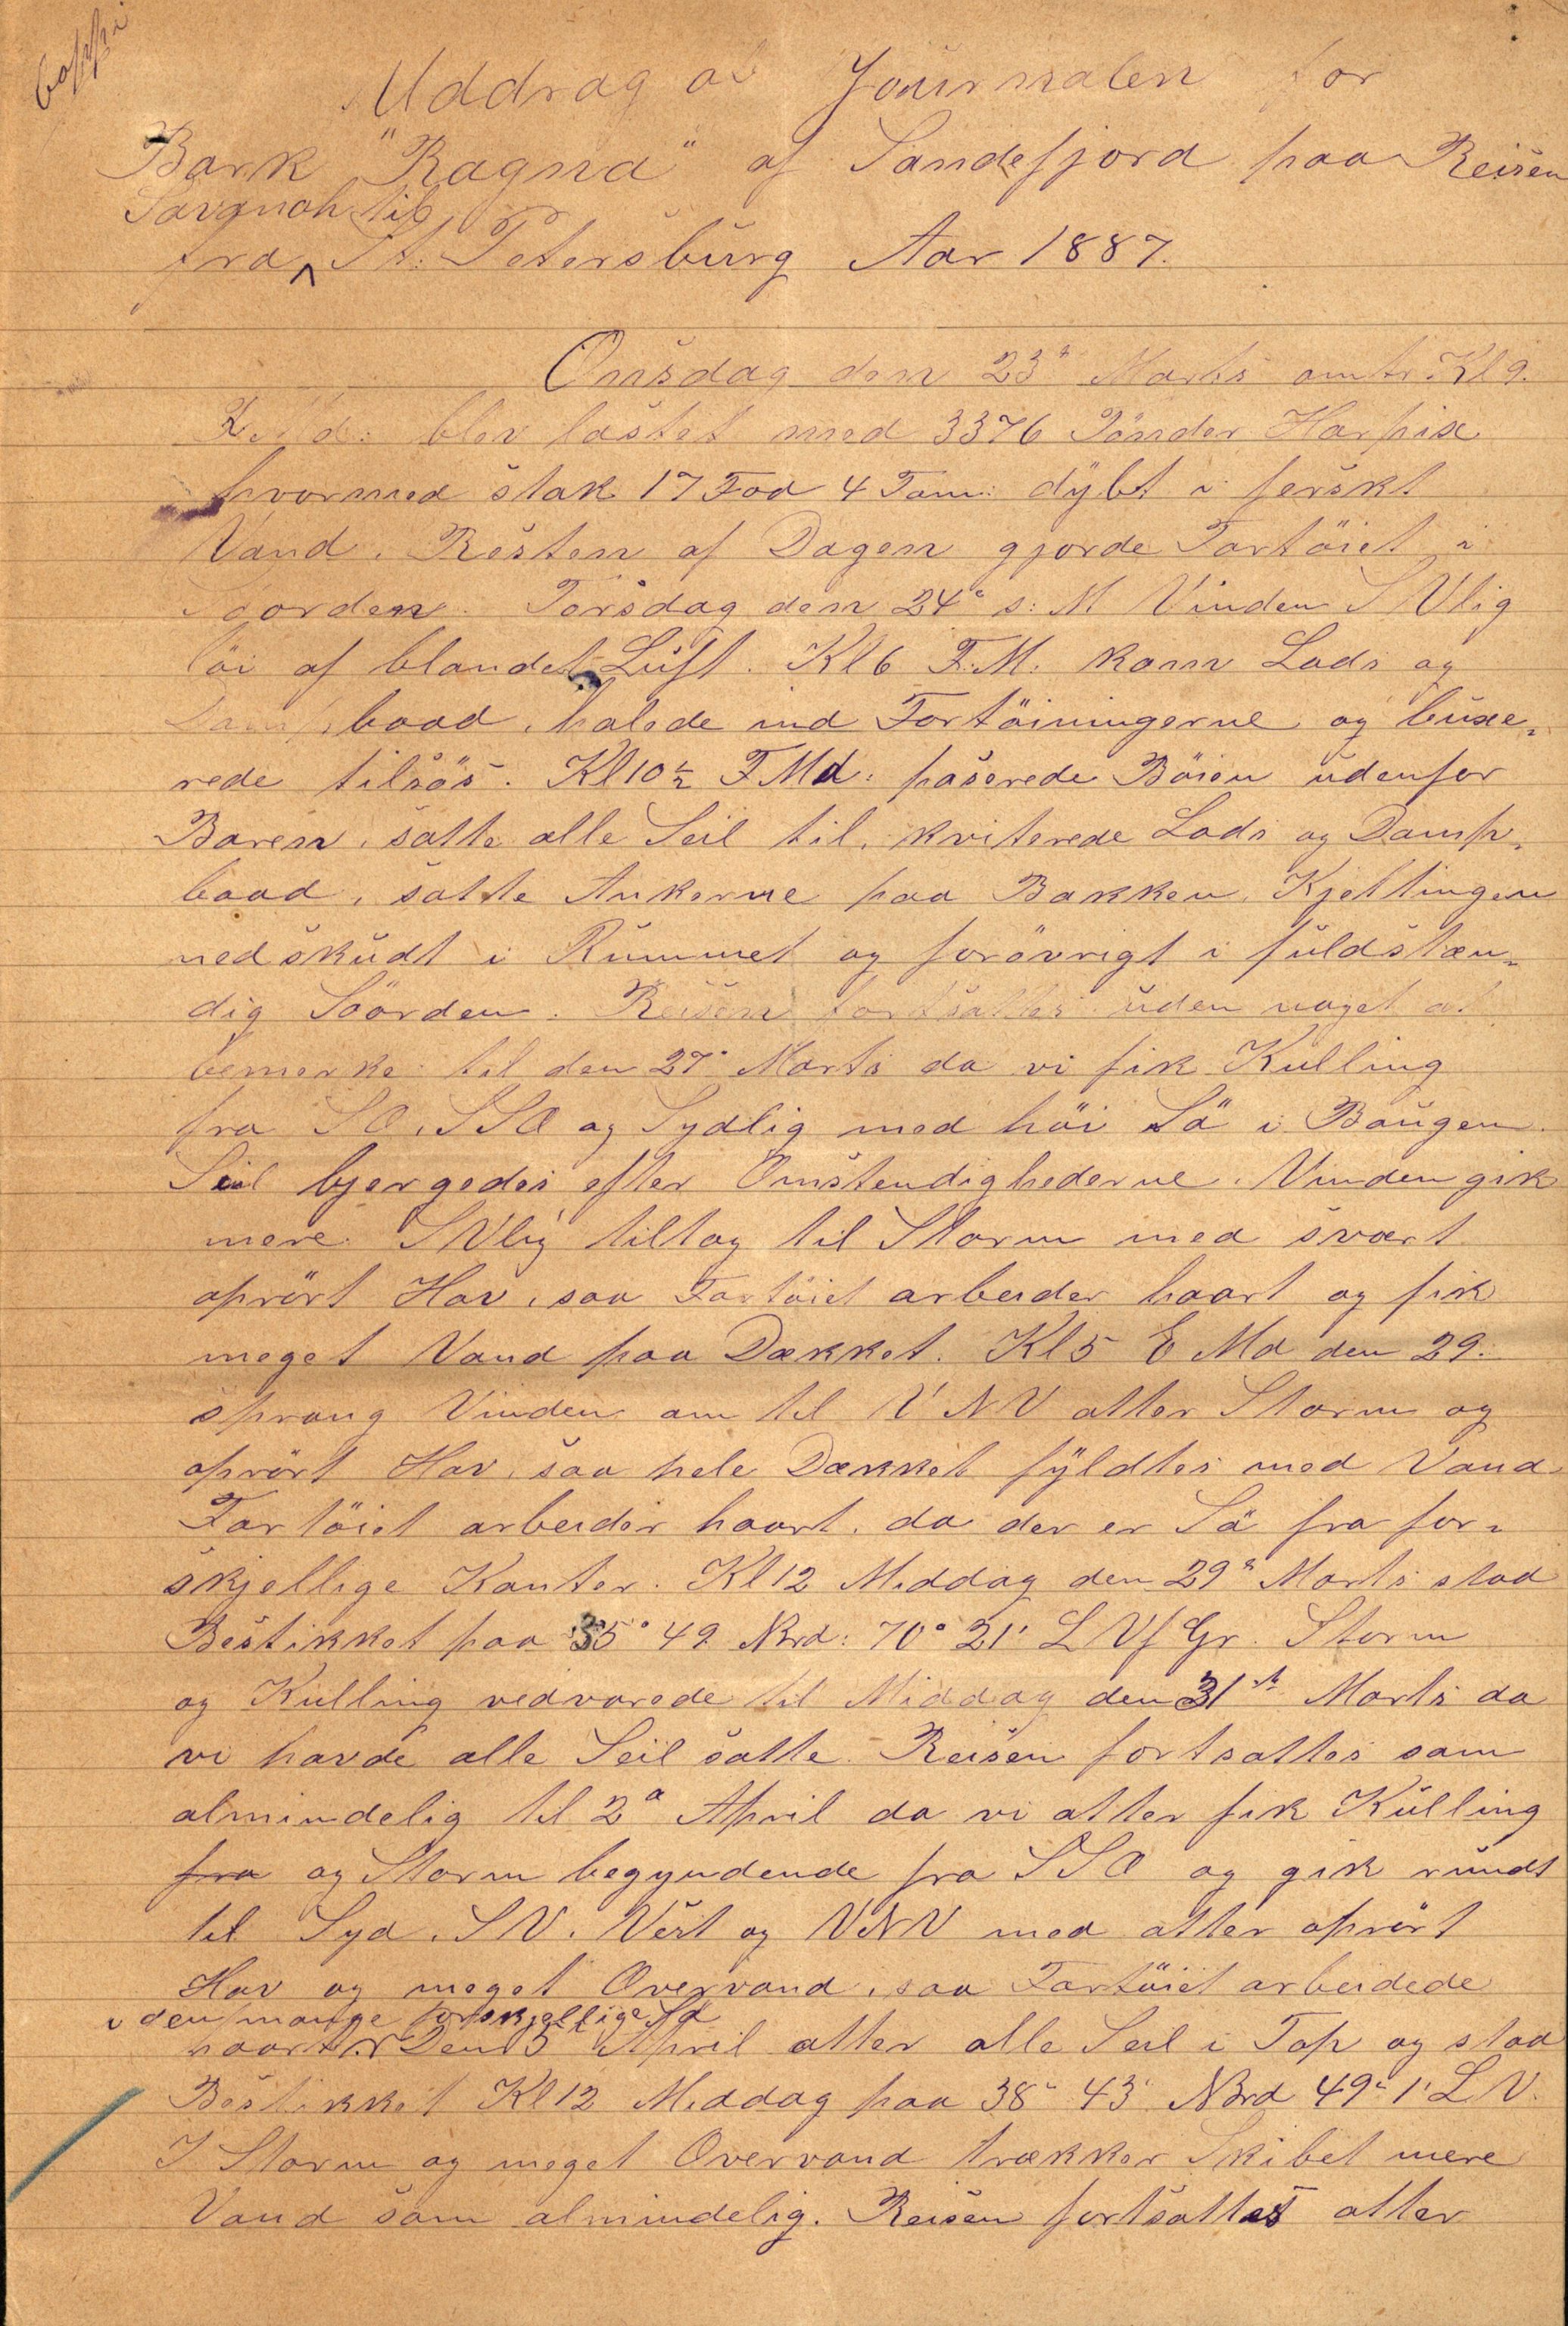 Coppi
Uddrag af Journalen for
Bark "Ragna" af Sandefjord paa Reisen
Savanah til
fra St. Petersburg Aar 1887.
Onsdag den 23de Marts omtr. Kl 9.
E. Md: blev lastet med 3376 Tönder Harpix
hvormed stak 17 Fod 4 Tom: dÿbt i ferskt
Vand. Resten af Dagen gjorde Fartöiet i
Söorden. Torsdag den 24de s: M Vinden SVlig
löi af blandet Luft. Kl 6 F.M. kom Lods og
Dampbaad, halede ind Fortöiningerne og buxe-
rede tilsös. Kl 10½ F Md: paserede Böien udenfor
Baren, satte alle Seil til, kviterede Lods og Damp-
baad, satte Ankerne paa Bakken, Kjettingen
nedskudt i Rummet og forövrigt i fuldstæn-
dig Söorden. Reisen fortsattes uden noget at
bemerke til den 27de Marts da vi fik Kulling
fra SO, SSO og Sydlig med höi Sö i Baugen.
Seil bjergedes efter Omstendighederne. Vinden gik
mere SVlig tiltog til Storm med svært
oprört Hav, saa Fartöiet arbeider haart og fik
meget Vand paa Dækket. Kl 5 E Md den 29.
sprang Vinden om til VNV atter Storm og
oprört Hav, saa hele Dækket fÿldtes med Vand
Fartöiet arbeider haart, da der er Sö fra for-
skjellige Kanter. Kl 12 Middag den 29de Marts stod
Bestikket paa 35° 49 NBrd: 70° 21' L Vf Gr. Storm
og Kulling vedvarede til Middag den 31te Marts da
vi havde alle Seil satte. Reisen fortsattes som
almindelig til 2de April da vi atter fik Kulling
fra og Storm begyndende fra SSO og gik rundt
til Syd, SV, Vest og VNV med atter oprört
Hav og meget Overvand, saa Fartöiet arbeidede
i den mange forskjellige Sö
haart. Den 5 April atter alle Seil i Top og stod
Bestikket Kl 12 Middag paa 38° 43' NBrd 49° 1' L V.
I Storm og meget Overvand trækker Skibet mere
Vand som almindelig. Reisen fortsattes atter